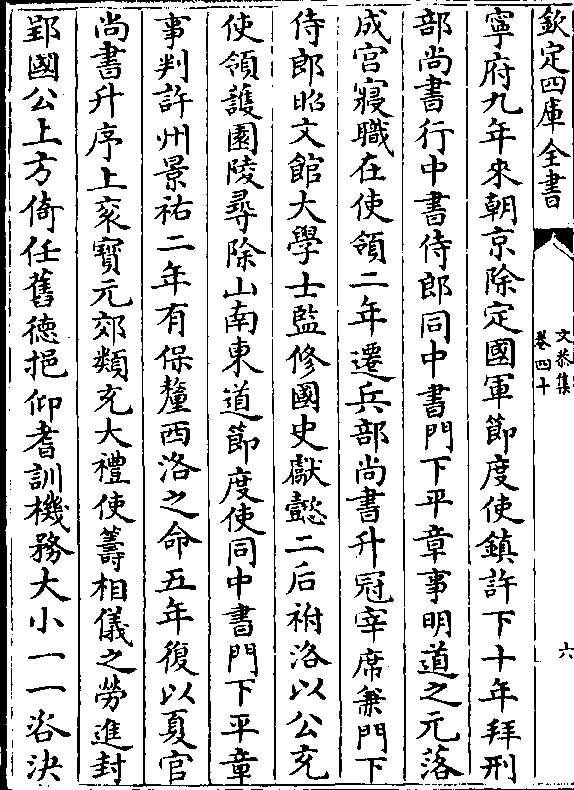 欽定四庫全書
文恭集
卷四十
六
寧府九年來朝京除定國軍節度使鎮許下十年拜刑
部尚書行中書侍郎同中書門下平章事明道之元落
成宫寢職在使領二年遷兵部尚書升冠宰席兼門下
侍郎昭文館大學士監修國史獻懿二后祔洛以公充
使領護園陵尋除山南東道節度使同中書門下平章
事判許州景祐二年有保釐西洛之命五年復以夏官
尚書升序上衮寶元郊類充大禮使籌相儀之勞進封
郢國公上方倚任舊徳挹仰耆訓機務大小一一咨決